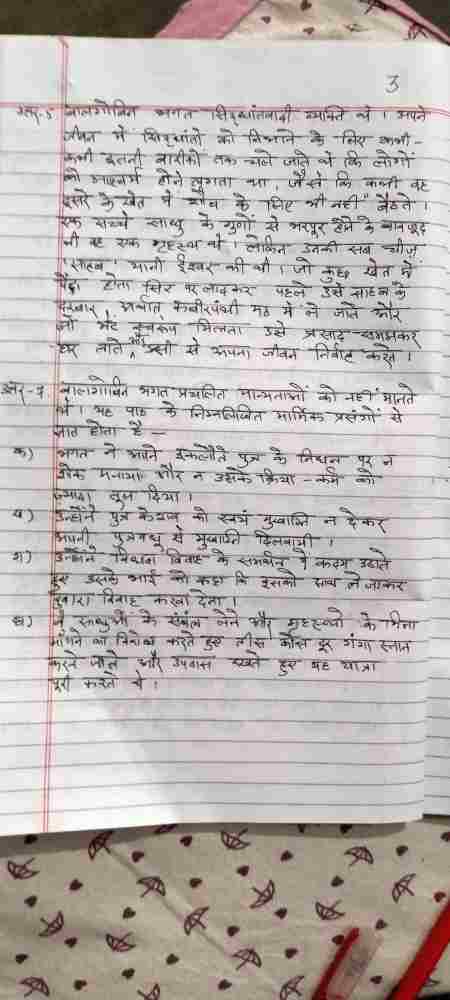 3
उत्तर-5 बालगोबिन भगत सिद्धांतवादी व्यक्ति थे। अपने
जीवन में सिद्धांतों को निभाने के लिए कभी-
कभी इतनी बारीकी तक चले जाते थे कि लोगों
को आश्चर्य होने लगता था, जैसे कि कभी वह
दूसरे के खेत में शौच के लिए भी नहीं बैठते।
एक सच्चे साधु के गुणों से भरपूर होने के बावजूद
भी वह एक गृहस्थ थे। लेकिन उनकी सब चीज़
'साहब' यानी ईश्वर की थी। जो कुछ खेत में
पैदा होता सिर पर लादकर पहले उसे साहब के
दरबार, अर्थात कबीरपंथी मठ में ले जाते और
जो भेंट स्वरूप मिलता उसे प्रसाद समझकर
घर लाते और उसी से अपना जीवन निर्वाह करते।
उत्तर-7 बालगोबिन भगत प्रचलित मान्यताओं को नहीं मानते
थे। यह पाठ के निम्नलिखित मार्मिक प्रसंगों से
ज्ञात होता है —
क) भगत ने अपने इकलौते पुत्र के निधन पर न
शोक मनाया और न उसके क्रिया-कर्म को
ज़्यादा तूल दिया।
ख) उन्होंने पुत्र के शव को स्वयं मुखाग्नि न देकर
अपनी पुत्रवधु से मुखाग्नि दिलवायी।
ग) उन्होंने विधवा विवाह के समर्थन में कदम उठाते
हुए उसके भाई को कहा कि इसको साथ ले जाकर
दुबारा विवाह करवा देना।
घ) वे साधुओं के संबल लेने और गृहस्थों के भिक्षा
माँगने का विरोध करते हुए तीस कोस दूर गंगा स्नान
करने जाते और उपवास रखते हुए यह यात्रा
पूरी करते थे।